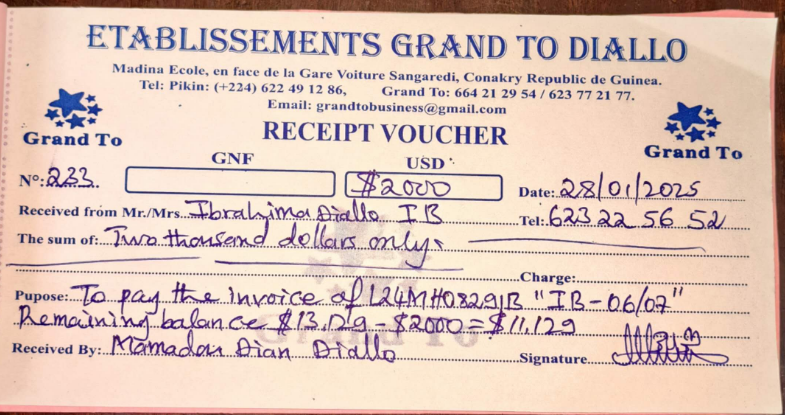 ETABLISSEMENTS GRAND TO DIALLO
Madina Ecole, en face de la Gare Voiture Sangaredi, Conakry Republic de Guinea.
Tel: Pikin: (+224) 622 49 12 86, Grand To: 664 21 29 54 / 623 77 21 77.
Email: grandtobusiness@gmail.com
Grand To RECEIPT VOUCHER Grand To
GNF USD
Nº: 233. $2000 Date: 28/01/2025
Received from Mr./Mrs. Ibrahima Diallo IB Tel: 623 22 56 52
The sum of: Two thousand dollars only.
Charge:
Pupose: To pay the invoice of L24MH0829JB "IB-06/07"
Remaining balance $13,129 - $2000 = $11,129
Received By: Mamadou Dian Diallo Signature